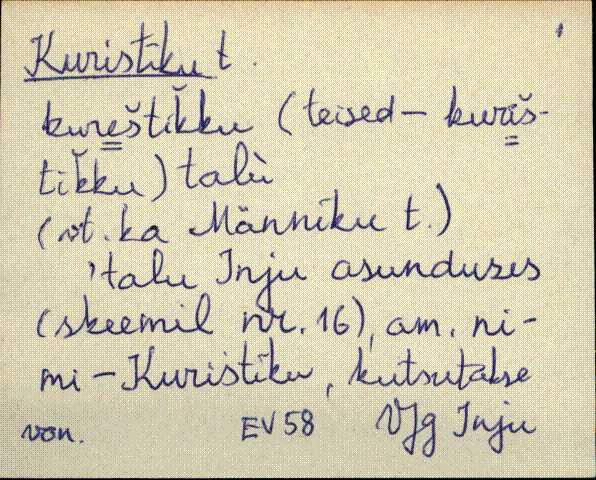 Kuristiku t.
kureštik̆ku (teised – kuriš-
tik̆ku) talù
(vt. ka Männiku t.)
'talu Inju asunduses
(skeemil nr. 16), am. ni-
mi – Kuristiku, kutsutakse
von. EV 58 VJg Inju